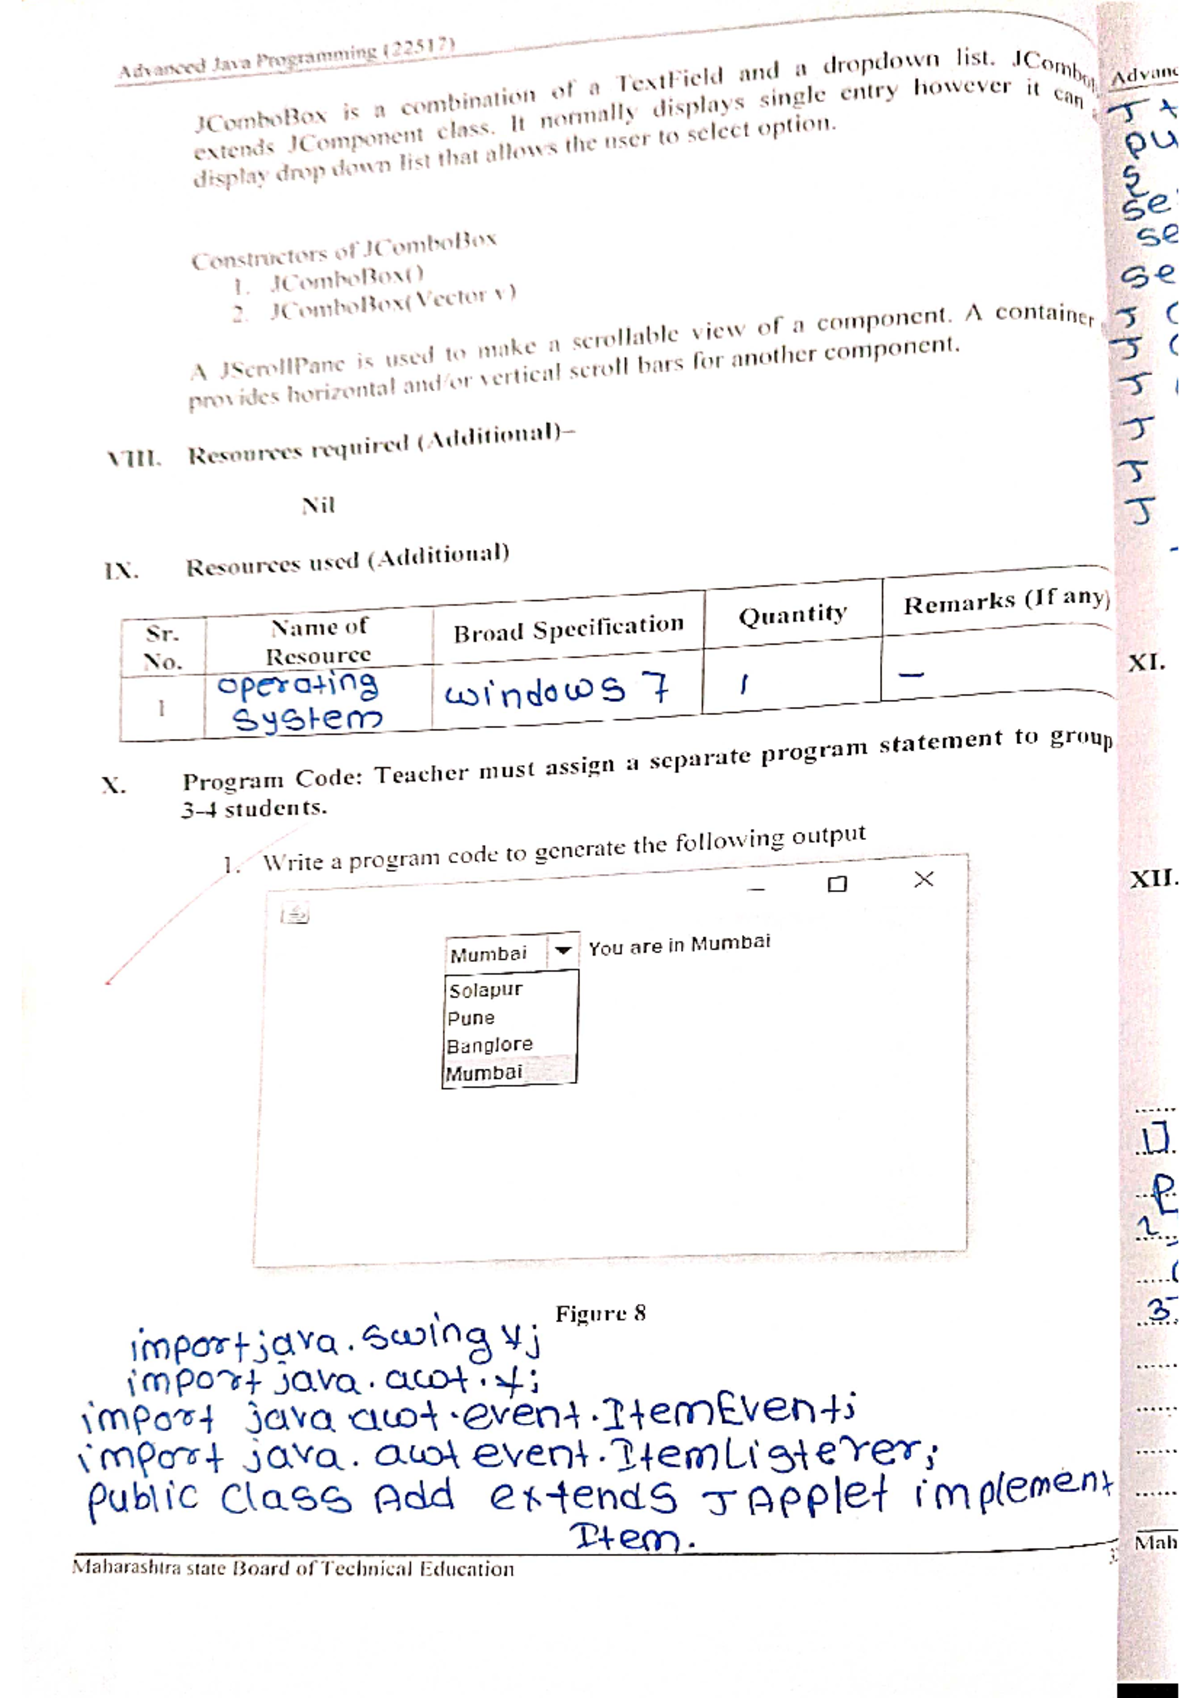 Advanced Java Programming (22517)
JComboBox is a combination of a TextField and a dropdown list. JCombo
extends JComponent class. It normally displays single entry however it can
display drop down list that allows the user to select option.
Constructors of JComboBox
1. JComboBox()
2. JComboBox(Vector v)
A JScrollPane is used to make a scrollable view of a component. A container
provides horizontal and/or vertical scroll bars for another component.
VIII. Resources required (Additional)–
Nil
IX. Resources used (Additional)
Sr. No. Name of Resource Broad Specification Quantity Remarks (If any)
1 operating system windows 7 1 –
X. Program Code: Teacher must assign a separate program statement to group
3-4 students.
1. Write a program code to generate the following output
Mumbai You are in Mumbai
Solapur
Pune
Banglore
Mumbai
Figure 8
import java.swing *;
import java.awt.*;
import java awt.event.ItemEvent;
import java.awt event.ItemListerer;
public class Add extends JApplet implement
Item.
Maharashtra state Board of Technical Education
Advanc
pu
se
se
se
XI.
XII.
1].
P
2
3
Mah